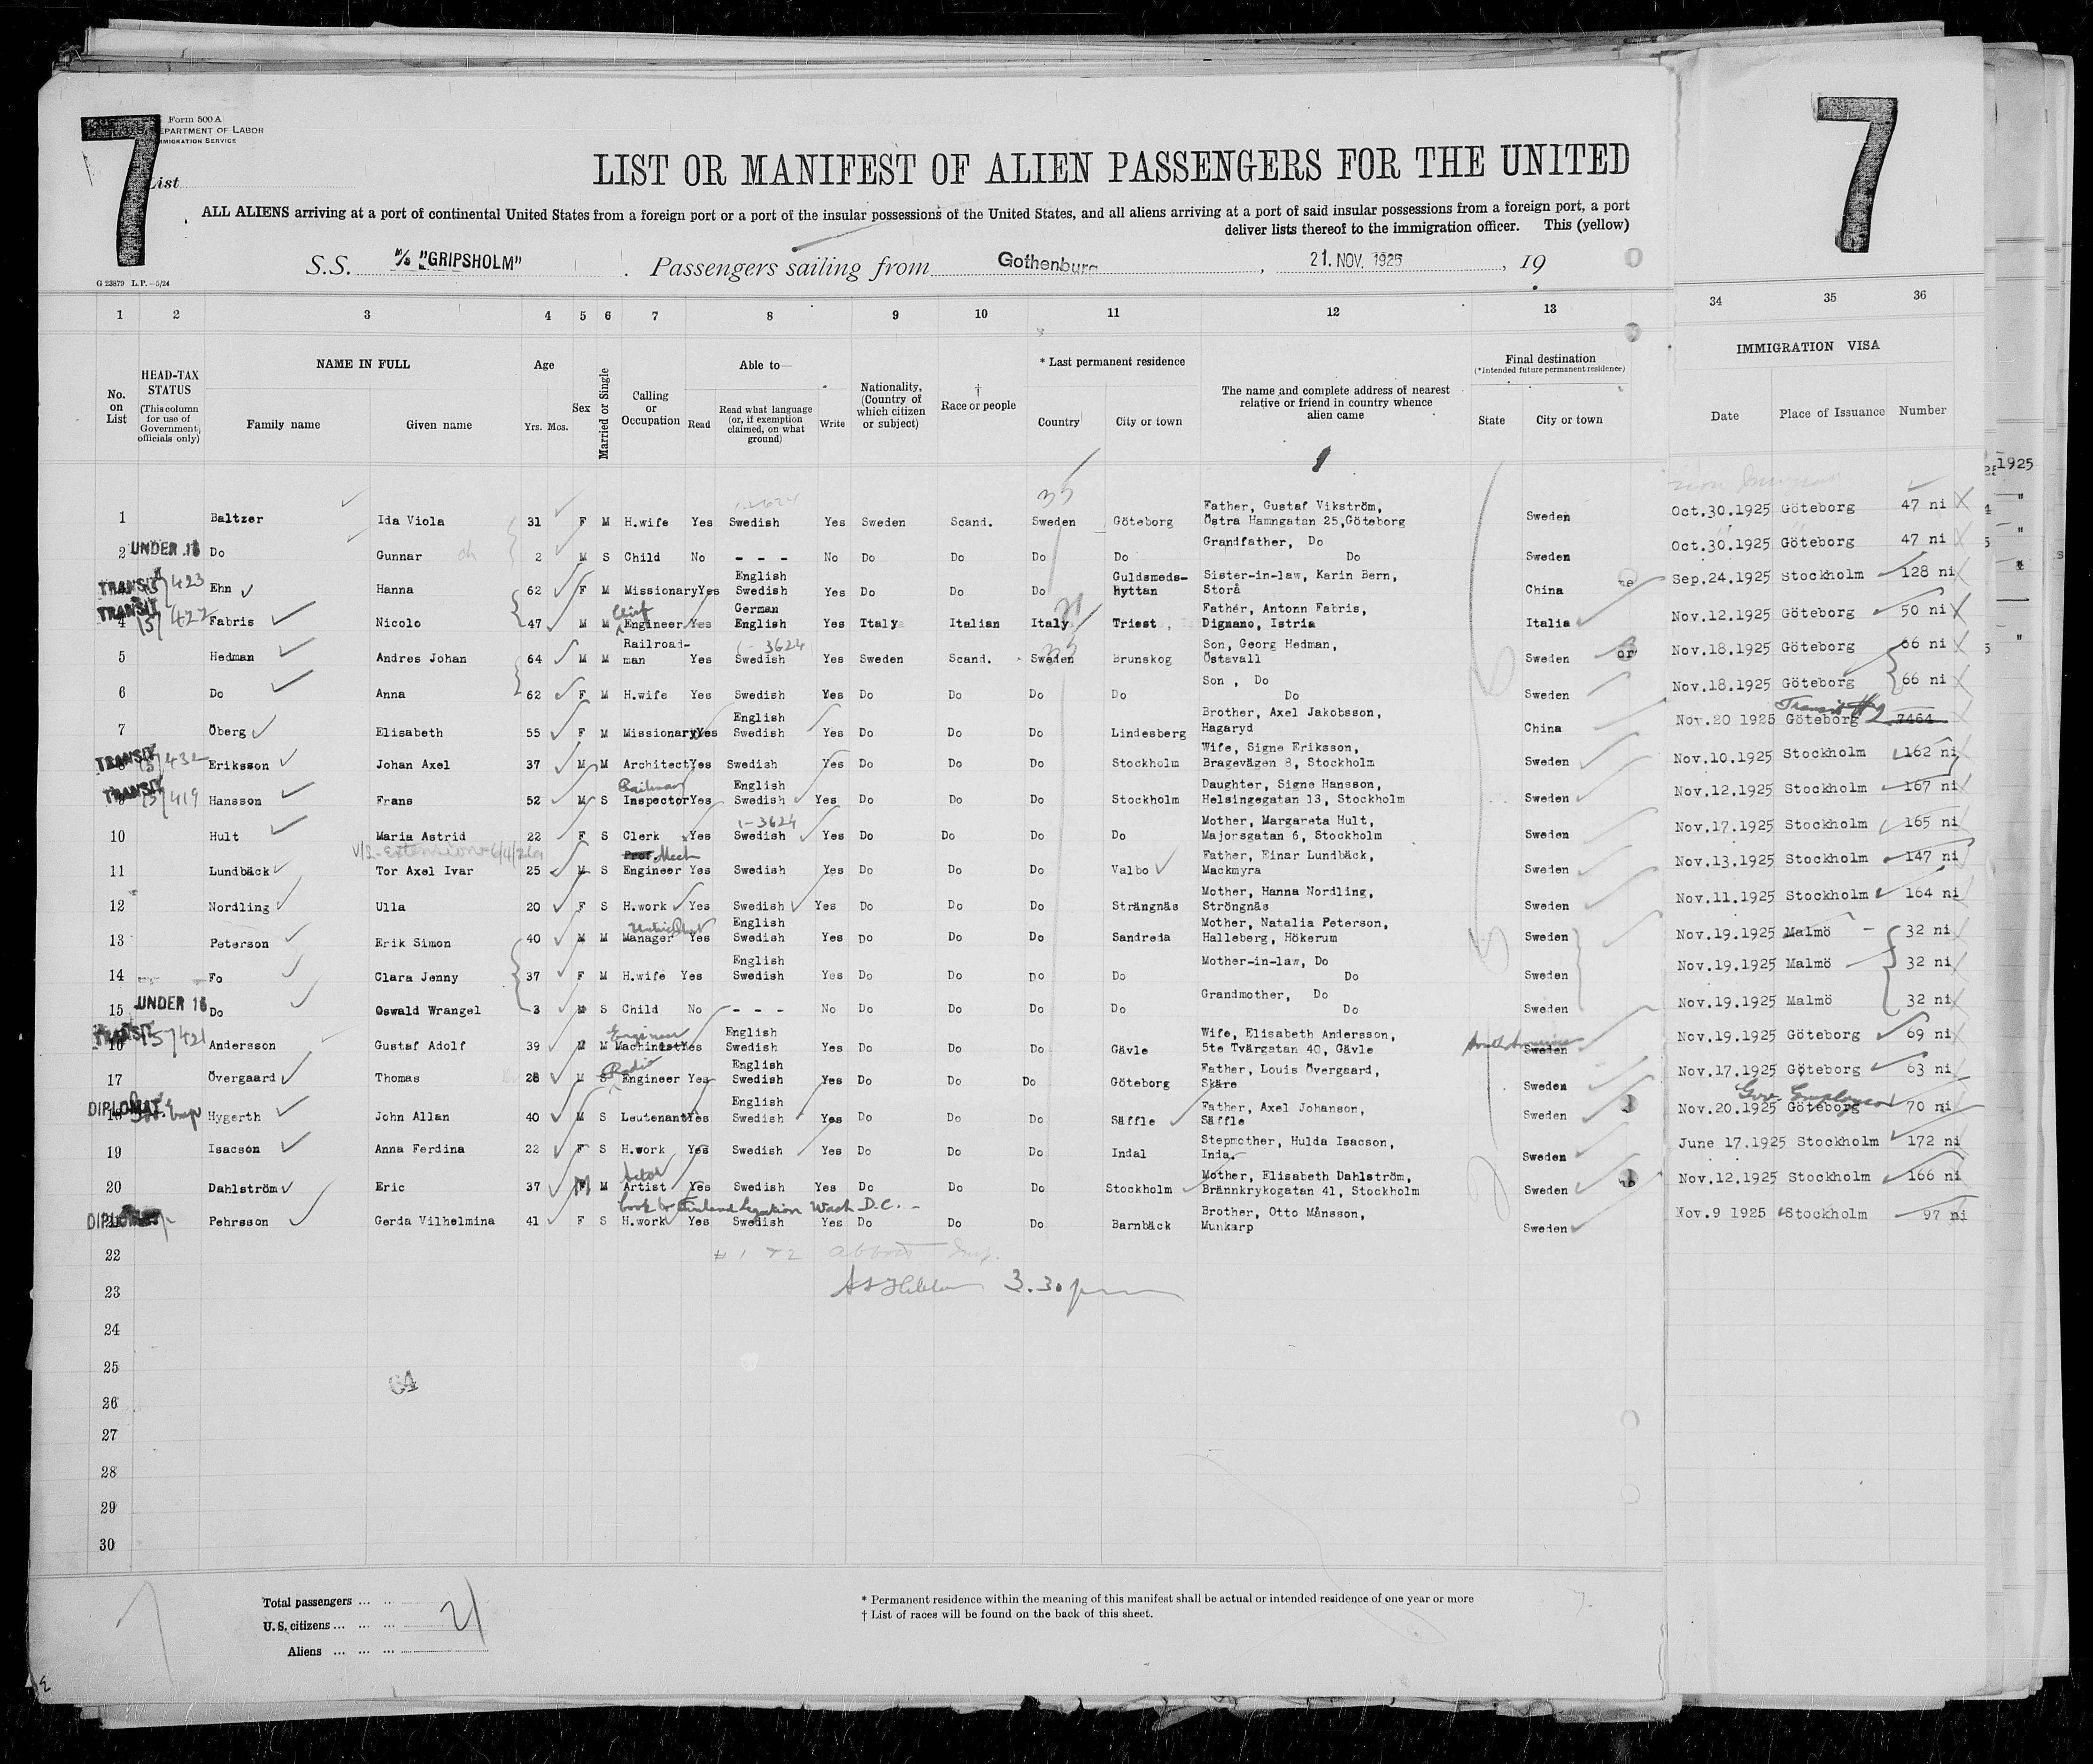 7
Form 500 A
DEPARTMENT OF LABOR
IMMIGRATION SERVICE
List
LIST OR MANIFEST OF ALIEN PASSENGERS FOR THE UNITED
ALL ALIENS arriving at a port of continental United States from a foreign port or a port of the insular possessions of the United States, and all aliens arriving at a port of said insular possessions from a foreign port, a port
deliver lists thereof to the immigration officer. This (yellow)
S.S. M/S "GRIPSHOLM" Passengers sailing from Gothenburg, 21. NOV. 1925, 19
G 23879 L.P.—5/24
7
1 2 3 4 5 6 7 8 9 10 11 12 13 34 35 36
No. on List
HEAD-TAX STATUS (This column for use of Government officials only)
NAME IN FULL
Family name Given name
Age Yrs. Mos.
Sex
Married or Single
Calling or Occupation
Able to—
Read Read what language (or, if exemption claimed, on what ground) Write
Nationality, (Country of which citizen or subject)
† Race or people
* Last permanent residence
Country City or town
The name and complete address of nearest relative or friend in country whence alien came
Final destination (*Intended future permanent residence)
State City or town
IMMIGRATION VISA
Date Place of Issuance Number
1925
1 Baltzer Ida Viola 31 F M H.wife Yes Swedish Yes Sweden Scand. Sweden Göteborg Father, Gustaf Vikström, Östra Hamngatan 25,Göteborg Sweden Oct.30.1925 Göteborg 47 ni
2 UNDER 16 Do Gunnar ch 2 M S Child No - - - No Do Do Do Do Grandfather, Do Do Sweden Oct.30.1925 Göteborg 47 ni
3 TRANSIT 423 Ehn Hanna 62 F M Missionary Yes English Swedish Yes Do Do Do Guldsmeds-hyttan Sister-in-law, Karin Bern, Storå China Sep.24.1925 Stockholm 128 ni
4 TRANSIT 422 Fabris Nicolo 47 M M Chief Engineer Yes German English Yes Italy Italian Italy Triest Father, Antonn Fabris, Dignano, Istria Italia Nov.12.1925 Göteborg 50 ni
5 Hedman Andres Johan 64 M M Railroad-man Yes Swedish Yes Sweden Scand. Sweden Brunskog Son, Georg Hedman, Östavall Sweden Nov.18.1925 Göteborg 66 ni
6 Do Anna 62 F M H.wife Yes Swedish Yes Do Do Do Do Son , Do Do Sweden Nov.18.1925 Göteborg 66 ni
7 Öberg Elisabeth 55 F M Missionary Yes English Swedish Yes Do Do Do Lindesberg Brother, Axel Jakobsson, Hagaryd China Nov.20 1925 Göteborg Transit #2 7464
8 TRANSIT 432 Eriksson Johan Axel 37 M M Architect Yes Swedish Yes Do Do Do Stockholm Wife, Signe Eriksson, Bragevägen 8, Stockholm Sweden Nov.10.1925 Stockholm 162 ni
9 TRANSIT 419 Hansson Frans 52 M S Railway Inspector Yes English Swedish Yes Do Do Do Stockholm Daughter, Signe Hansson, Helsingegatan 13, Stockholm Sweden Nov.12.1925 Stockholm 167 ni
10 Hult Maria Astrid 22 F S Clerk Yes 1-3624 Swedish Yes Do Do Do Do Mother, Margareta Hult, Majorsgatan 6, Stockholm Sweden Nov.17.1925 Stockholm 165 ni
11 Lundbäck Tor Axel Ivar 25 M S Prof Mech Engineer Yes Swedish Yes Do Do Do Valbo Father, Einar Lundbäck, Mackmyra Sweden Nov.13.1925 Stockholm 147 ni
12 Nordling Ulla 20 F S H.work Yes Swedish Yes Do Do Do Strängnäs Mother, Hanna Nordling, Ströngnäs Sweden Nov.11.1925 Stockholm 164 ni
13 Peterson Erik Simon 40 M M Manager Yes English Swedish Yes Do Do Do Sandreda Mother, Natalia Peterson, Halleberg, Hökerum Sweden Nov.19.1925 Malmö 32 ni
14 Fo Clara Jenny 37 F M H.wife Yes English Swedish Yes Do Do Do Do Mother-in-law, Do Do Sweden Nov.19.1925 Malmö 32 ni
15 UNDER 16 Do Oswald Wrangel 3 M S Child No - - - No Do Do Do Do Grandmother, Do Do Sweden Nov.19.1925 Malmö 32 ni
16 TRANSIT 421 Andersson Gustaf Adolf 39 M M Engineer Machinest Yes English Swedish Yes Do Do Do Gävle Wife, Elisabeth Andersson, 5te Tvärgatan 40, Gävle South America Sweden Nov.19.1925 Göteborg 69 ni
17 Övergaard Thomas 28 M S Radio Engineer Yes English Swedish Yes Do Do Do Göteborg Father, Louis Övergaard, Skäre Sweden Nov.17.1925 Göteborg 63 ni
18 DIPLOMAT Gov. Emp Hygerth John Allan 40 M S Leutenant Yes English Swedish Yes Do Do Do Säffle Father, Axel Johanson, Säffle Sweden Nov.20.1925 Göteborg Gov Employee 70 ni
19 Isacson Anna Ferdina 22 F S H.work Yes Swedish Yes Do Do Do Indal Stepmother, Hulda Isacson, Inda. Sweden June 17.1925 Stockholm 172 ni
20 Dahlström Eric 37 M M Actor Artist Yes Swedish Yes Do Do Do Stockholm Mother, Elisabeth Dahlström, Brännkrykogatan 41, Stockholm Sweden Nov.12.1925 Stockholm 166 ni
Cook to Finland Legation Wash D.C.
21 DIPLOMAT Pehrsson Gerda Vilhelmina 41 F S H.work Yes Swedish Yes Do Do Do Barnbäck Brother, Otto Månsson, Munkarp Sweden Nov.9 1925 Stockholm 97 ni
22
23 3.30 pm
24
25
64
26
27
28
29
30
Total passengers ... ...
U.S. citizens ... ... ... 21
Aliens ... ... ...
* Permanent residence within the meaning of this manifest shall be actual or intended residence of one year or more
† List of races will be found on the back of this sheet.